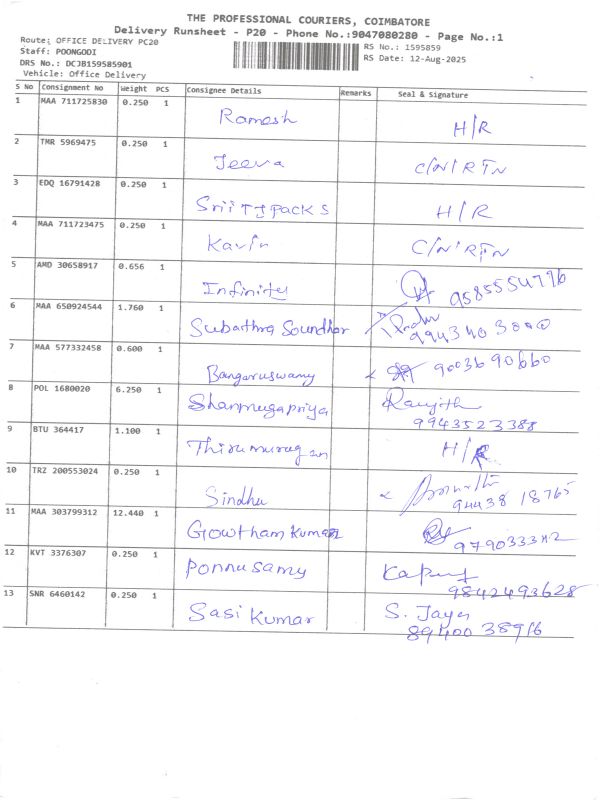 THE PROFESSIONAL COURIERS, COIMBATORE
Delivery Runsheet - P20 - Phone No.:9047080280 - Page No.:1
Route: OFFICE DELIVERY PC20
RS No.: 1595859
Staff: POONGODI
RS Date: 12-Aug-2025
DRS No.: DCJB159585901
Vehicle: Office Delivery
S No Consignment No Weight PCS Consignee Details Remarks Seal & Signature
1 MAA 711725830 0.250 1 Ramesh H/R
2 TMR 5969475 0.250 1 Jeeva C/N/RTN
3 EDQ 16791428 0.250 1 H/R
4 MAA 711723475 0.250 1 Kavin C/N/RTN
5 AMD 30658917 0.656 1 Infinity 9585554796
6 MAA 650924544 1.760 1 Subathra Soundhar
9943403000
7 MAA 577332458 0.600 1 Bangaruswamy 9003690660
8 POL 1680020 6.250 1 Shanmugapriya Ranjith
9943523388
9 BTU 364417 1.100 1 Thirumurugan H/R
10 TRZ 200553024 0.250 1 Sindhu
94438 18765
11 MAA 303799312 12.440 1 Gowtham Kumar
12 KVT 3376307 0.250 1 Ponnusamy
9842493628
13 SNR 6460142 0.250 1 Sasi Kumar S. Jaya
89400 38916